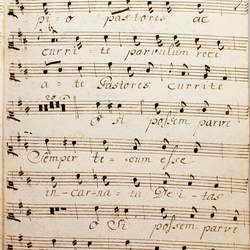 pi = o pastores ac
curri = te parvulum rece
a = te Pastores Currite
20
O si possem parve
Semper te = cum esse
in = car = na = ta De i = tas
O Si possem parve